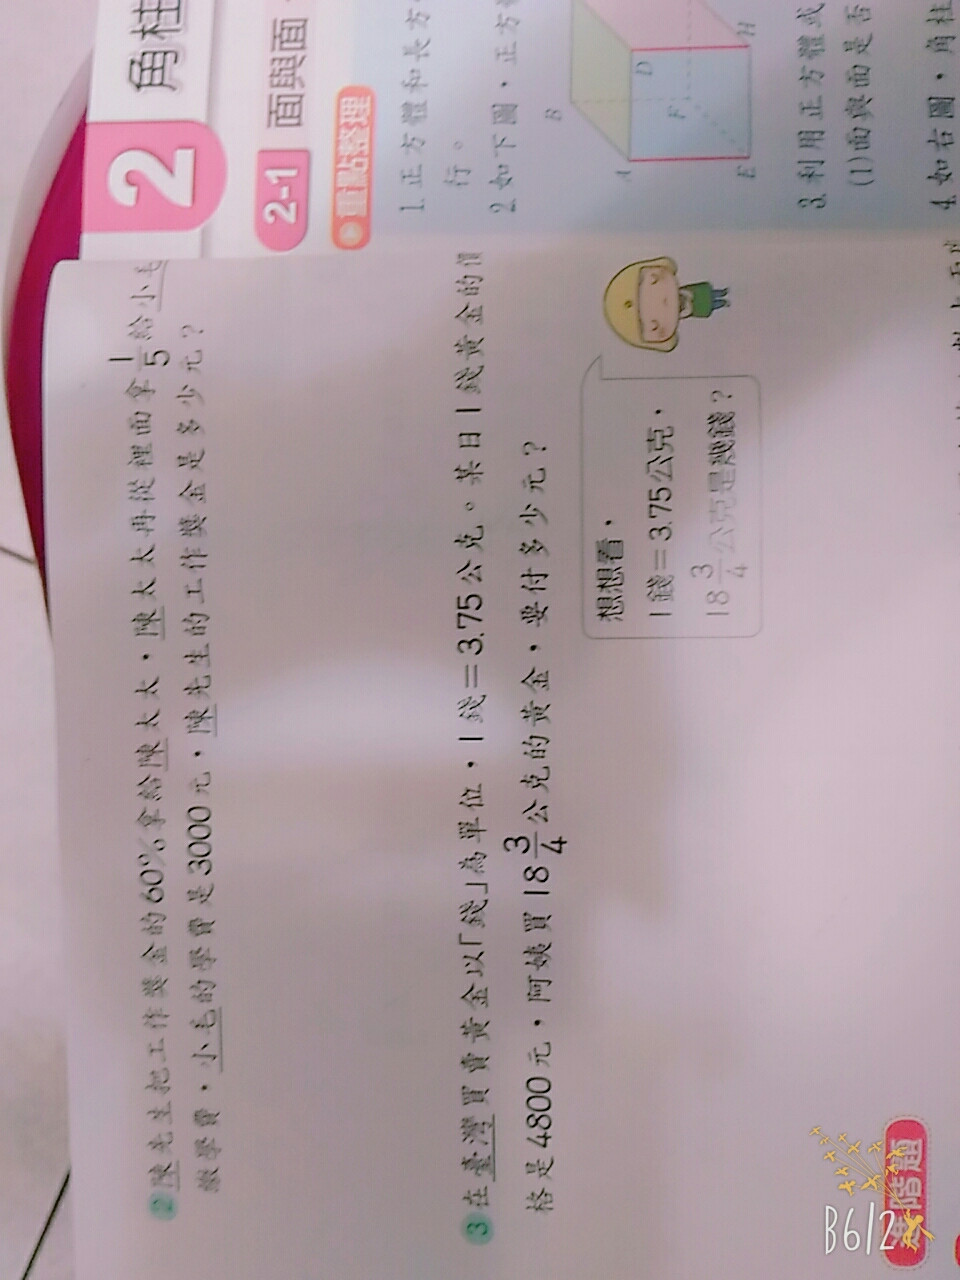 ② 陳先生把工作獎金的60%拿給陳太太，陳太太再從裡面拿1/5給小毛
繳學費，小毛的學費是3000元，陳先生的工作獎金是多少元？
③ 在臺灣買賣黃金以「錢」為單位，1錢=3.75公克。某日1錢黃金的價
格是4800元，阿姨買18 3/4公克的黃金，要付多少元？
想想看，
1錢=3.75公克，
18 3/4公克是幾錢？
進階題
B612
2 角柱
2-1 面與面
重點整理
1. 正方體和長方
行。
2. 如下圖，正方
A
B
D
E
F
H
3. 利用正方體或
(1)面與面是否
4. 如右圖，角柱